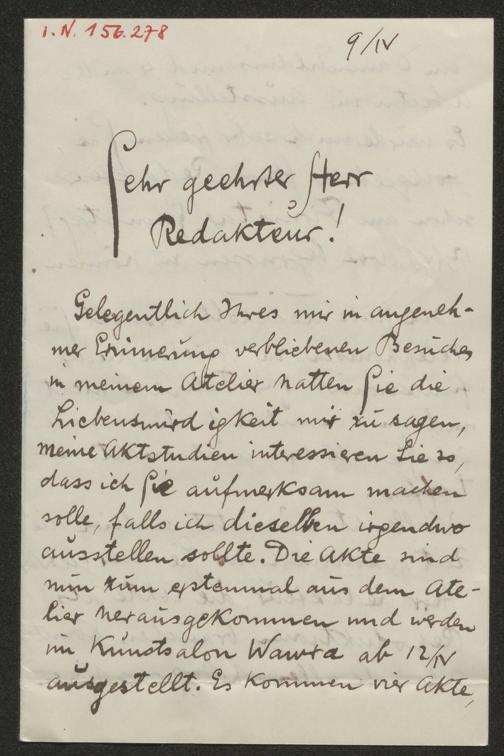 I.N. 156.278
9/IV
Sehr geehrter Herr
Redakteur!
Gelegentlich Ihres mir in angeneh-
mer Erinnerung verbliebenen Besuches
in meinem Atelier hatten Sie die
Liebenswürdigkeit mir zu sagen,
meine Aktstudien interessieren Sie so,
dass ich Sie aufmerksam machen
solle, falls ich dieselben irgendwo
ausstellen sollte. Die Akte sind
nun zum erstenmal aus dem Ate-
lier herausgekommen und werden
im Kunstsalon Wawra ab 12/IV
ausgestellt. Es kommen vier Akte,